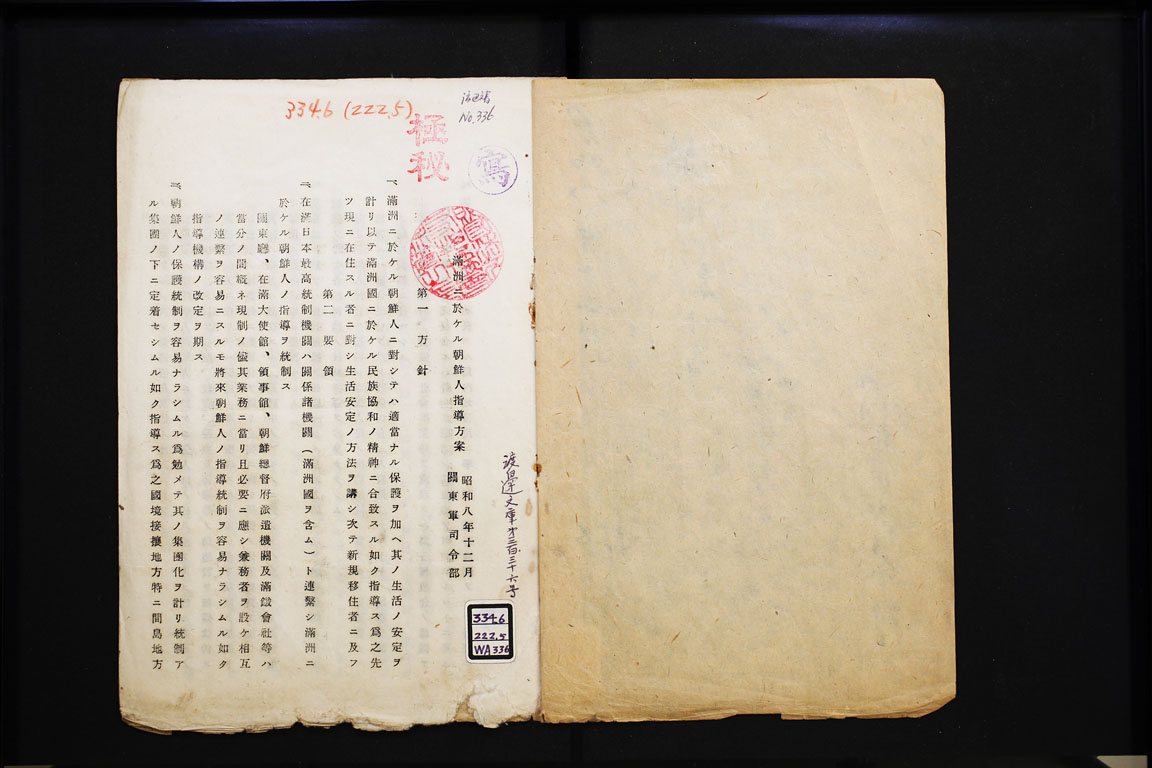 334.6 (222.5)
No.336
極秘
寫
滿洲ニ於ケル朝鮮人指導方案
昭和八年十二月
關東軍司令部
第一 方針
一、滿洲ニ於ケル朝鮮人ニ對シテハ適當ナル保護ヲ加ヘ其ノ生活ノ安定ヲ
計リ以テ滿洲國ニ於ケル民族協和ノ精神ニ合致スル如ク指導ス爲之先
ツ現ニ在住スル者ニ對シ生活安定ノ方法ヲ講シ次テ新規移住者ニ及フ
第二 要領
一、在滿日本最高統制機關ハ關係諸機關(滿洲國ヲ含ム)ト連繫シ滿洲ニ
於ケル朝鮮人ノ指導ヲ統制ス
關東廳、在滿大使館、領事館、朝鮮總督府派遣機關及滿鐵會社等ハ
當分ノ間概ネ現制ノ儘其業務ニ當リ且必要ニ應シ兼務者ヲ設ケ相互
ノ連繫ヲ容易ニスルモ將來朝鮮人ノ指導統制ヲ容易ナラシムル如ク
指導機構ノ改定ヲ期ス
二、朝鮮人ノ保護統制ヲ容易ナラシムル爲勉メテ其ノ集團化ヲ計リ統制ア
ル集團ノ下ニ定着セシムル如ク指導ス爲之國境接攘地方特ニ間島地方
渡邊文庫第三百三十六号
334.6
222.5
WA336